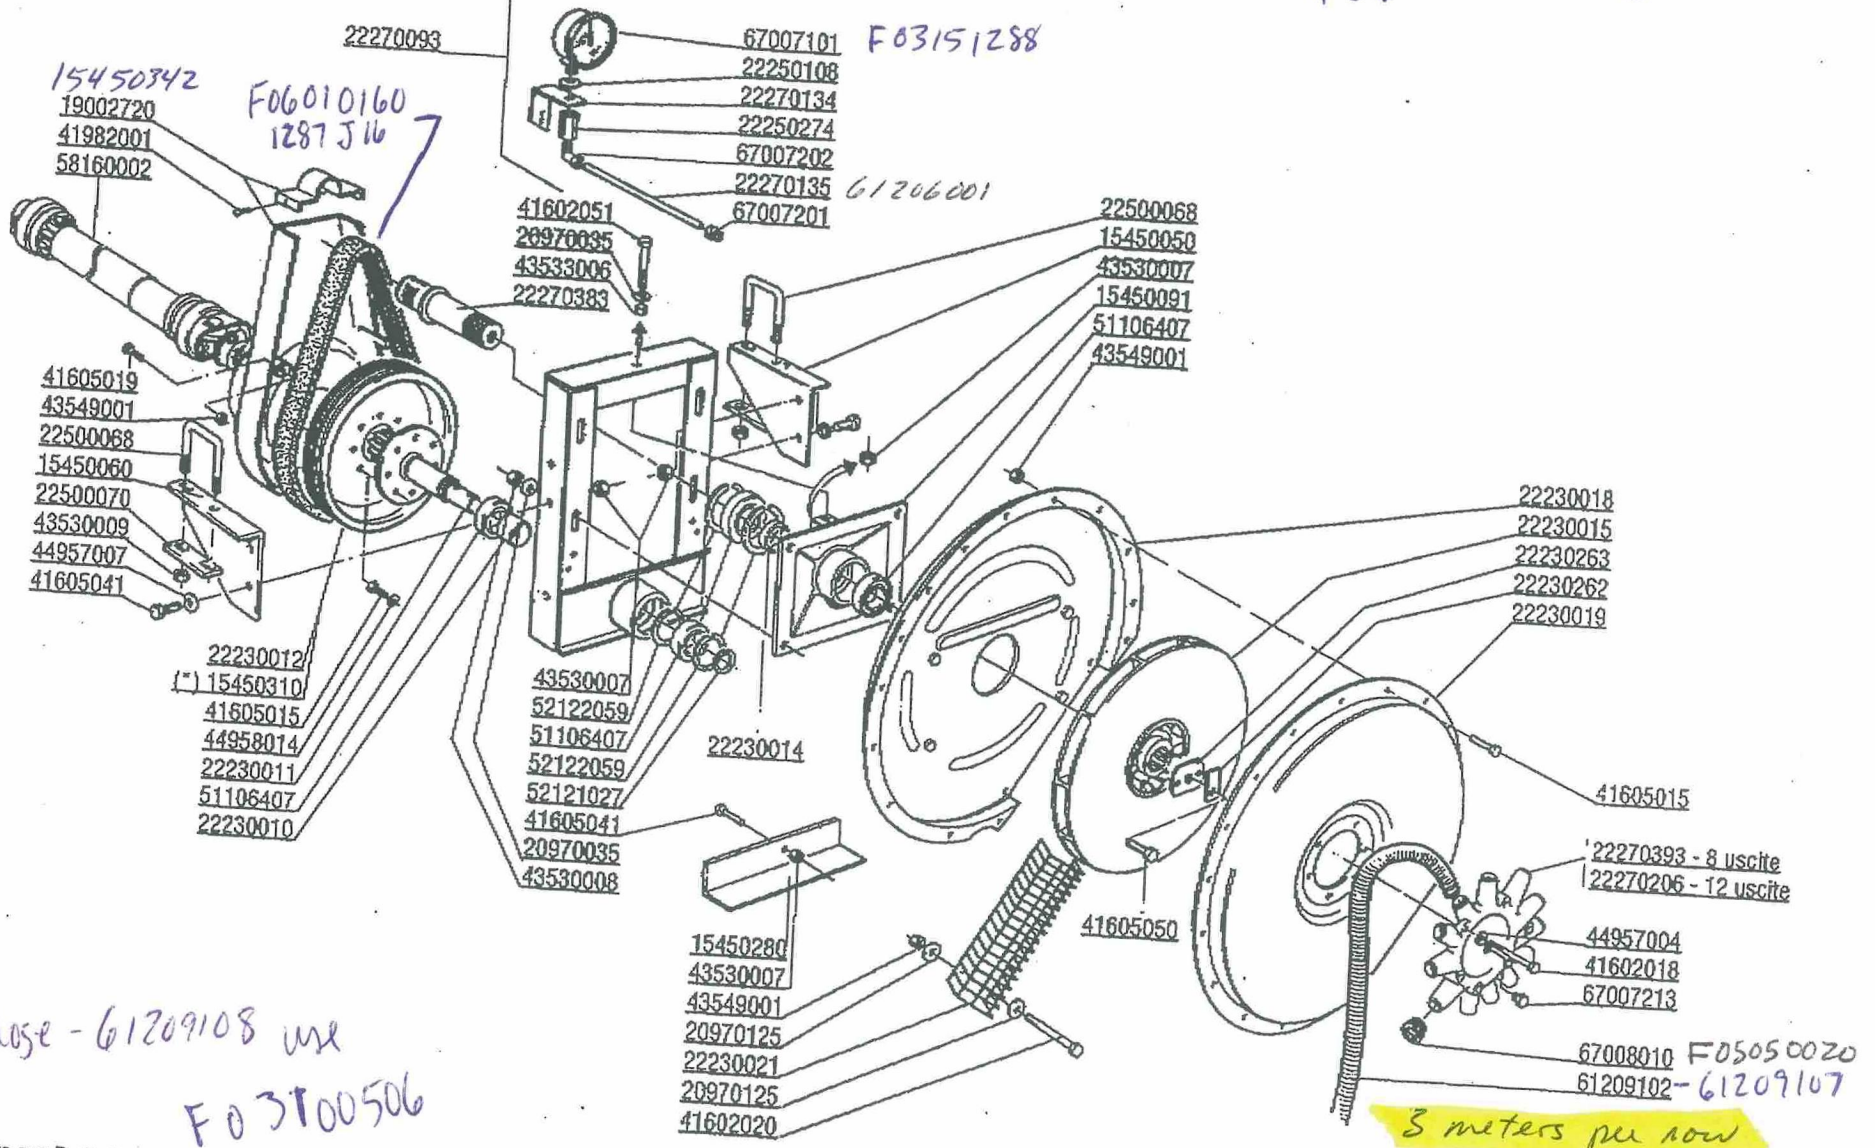 22270093
67007101 F03151288
22250108
22270134
22250274
67007202
22270135 61206001
67007201
15450342
19002720
41982001
58160002
F06010160
1287 J16
41602051
20970035
43533006
22270383
22500068
15450050
43530007
15450091
51106407
43549001
41605019
43549001
22500068
15450060
22500070
43530009
44957007
41605041
22230012
(*) 15450310
41605015
44958014
22230011
51106407
22230010
43530007
52122059
51106407
52122059
52121027
41605041
20970035
43530008
22230014
22230018
22230015
22230263
22230262
22230019
41605015
22270393 - 8 uscite
22270206 - 12 uscite
41605050
44957004
41602018
67007213
67008010 F05050020
61209102 - 61209107
3 meters per row
15450280
43530007
43549001
20970125
22230021
20970125
41602020
- 61209108 use
F03100506